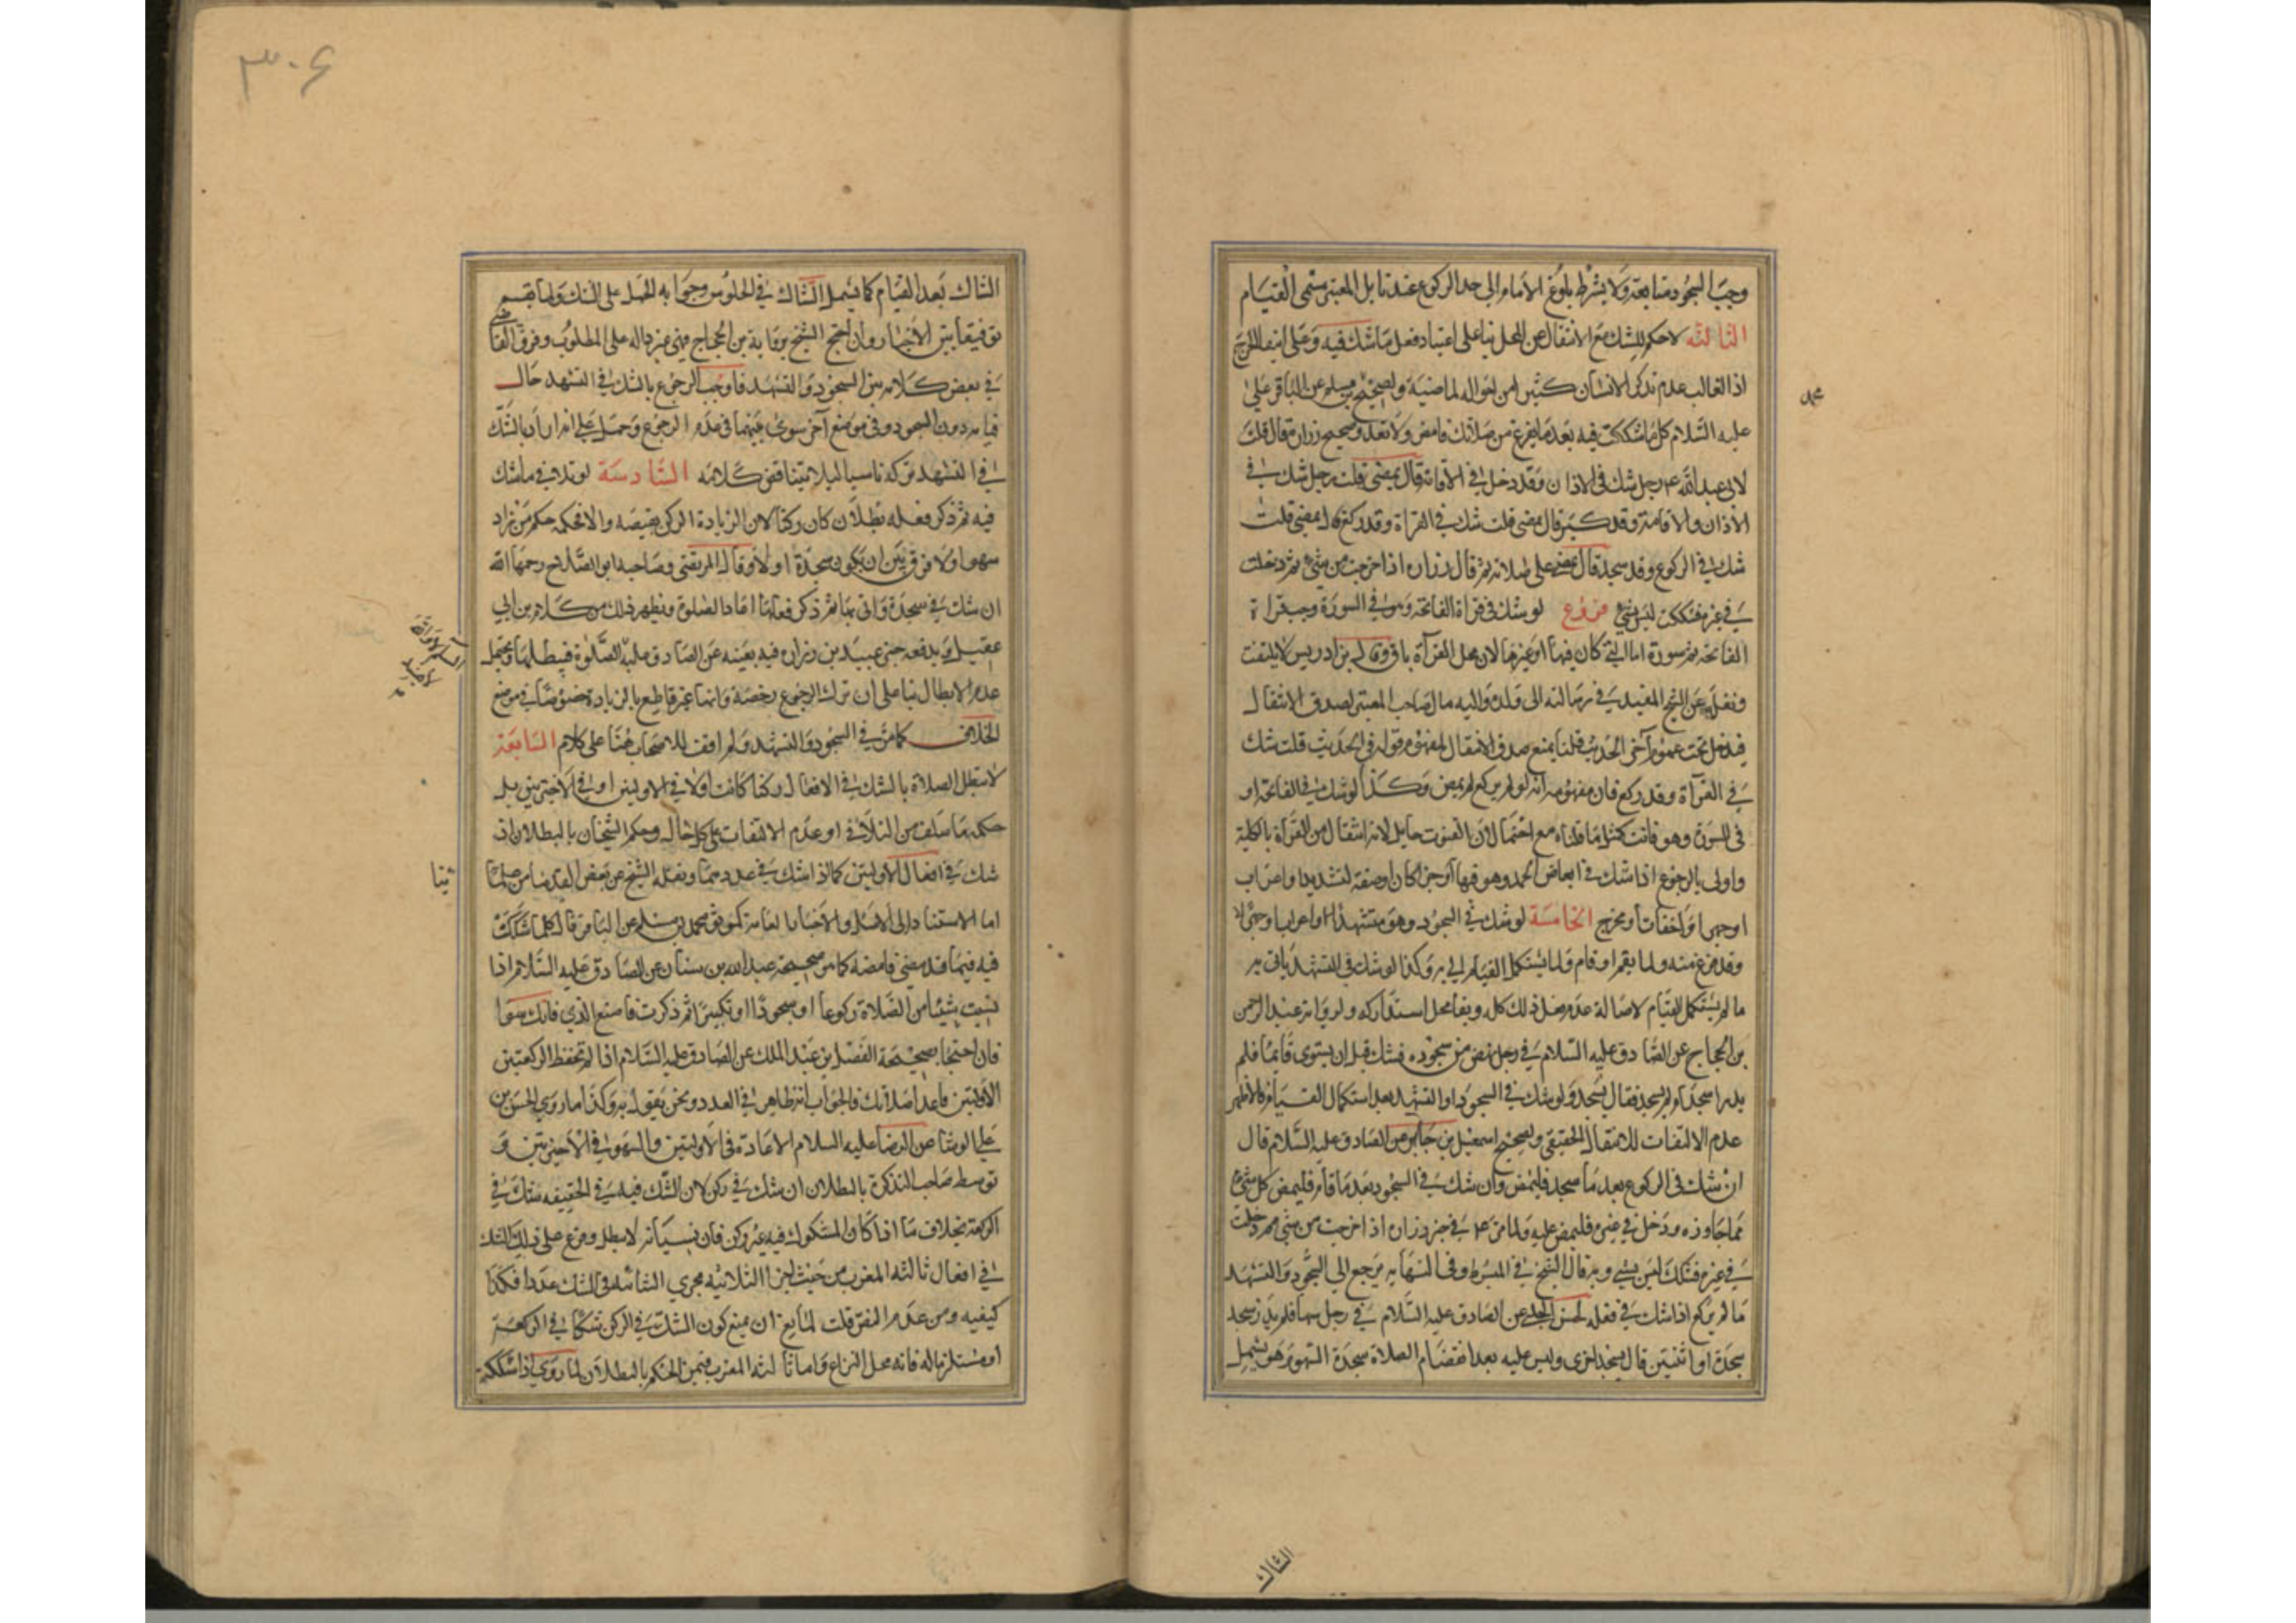 وجب السجود متابعة ولا يشترط بلوغ الامام الى حد الركوع عندنا بل المعتبر مسمى القيام
الثالثة لا حكم للشك مع الانتقال عن المحل بناء على اعتياد فعل ما شك فيه وعلى انتفاء الحرج
اذ الغالب عدم تذكر الانسان كثيرا من احواله الماضية ولصحيح بن مسلم عن الباقر على
محمد
عليه السلام كل ما شككت فيه بعد ما يفرغ من صلاتك فامض ولا تعد وصحيح زرارة قال قلت
لابي عبد الله ع رجل شك في الاذان وقد دخل في الاقامة قال يمضي قلت رجل شك في
الاذان والاقامة وقد كبر قال يمضي قلت شك في القراة وقد ركع قال يمضي قلت
شك في الركوع وقد سجد قال يمضي على صلاته ثم قال زرارة اذا خرجت من شيء ثم دخلت
في غيره فشكك ليس بشيء فروع لو شك في قراة الفاتحة وهو في السورة وجب قراة
الفاتحة ثم سورة اما التي كان فيها او غيرها لان محل القرآة باق وقال بن ادريس لا يلتفت
ونقله عن الشيخ المفيد في رسالته الى ولده واليه مال صاحب المعتبر لصدق الانتقال
فيدخل تحت عموم آخر الحديث قلنا يمنع صدق الانتقال لمفهوم قوله في الحديث قلت شك
في القرآة وقد ركع فان مفهومه انه لو لم يركع لم يمض وكذا لو شك في الفاتحة او
في السورة وهو قانت كمثل ما قلناه مع احتمال ان القنوت حايل لانه انتقال من القرآة بالكلية
واولى بالرجوع اذا شك في ابعاض الحمد وهو فيها آو جزا كان او صفة لتشديد او اعراب
او جهرا او اخفات او مخرج الخامسة لو شك في السجود وهو متشهد
وقد فرغ منه ولما يقم او قام ولما يستكمل القيام اتي به وكذا لو شك في التشهد ياتي به
ما لم يستكمل القيام لاصالة عدم فعل ذلك كله وبقا محل استدراكه ولرواية عبد الرحمن
بن الحجاج عن الصادق عليه السلام في رجل نهض من سجوده فشك قبل ان يستوي قايما فلم
يدر ا سجد ام لم يسجد فقال يسجد ولو شك في السجود او التشهد بعد استكمال القيام فالاظهر
عدم الالتفات للانتقال الحقيقي ولصحيح اسمعيل بن جابر عن الصادق عليه السلام قال
ان شك في الركوع بعد ما سجد فليمض وان شك في السجود بعد ما قام فليمض كل شيء
مما جاوزه ودخل في غيره فليمض عليه ولما مر في خبر زرارة اذا خرجت من شيء ثم دخلت
في غيره فشكك ليس بشيء وبه قال الشيخ في المبسوط وفي النهاية يرجع الى السجود والتشهد
ما لم يركع اذا شك في فعله لحسن الحلبي عن الصادق عليه السلام في رجل سها فلم يدر سجد
سجدة او اثنتين قال يسجد اخرى وليس عليه بعد انقضاء الصلاة سجدة السهو وهو يشمل
الشاك
٣٠٤
الشاك بعد القيام كما يشمل الشاك في الجلوس وجوابه الحمل على الشك ولما يقم
توفيقا بين الاخبار وان احتج الشيخ برواية بن الحجاج فهي غير دالة على المطلوب وفرق القاضي
في بعض كلامه بين السجود والتشهد فاوجب الرجوع بالشك في التشهد حال
قيامه دون السجود وفي موضع آخر سوى بينهما في عدم الرجوع وحمل على انه اراد بالشك
في التشهد تركه ناسيا ليلا يتناقض كلامه السادسة لو تلافي ما شك
فيه ثم ذكر فعله بطل ان كان ركنا لان الزيادة الركن بغيضه والا فحكمه حكم من زاد
سهوا ولا فرق بين ان يكون سجدة او لا وقال المرتضى وصاحبه ابو الصلاح رحمهما الله
ان شك في سجدة واتى بها ثم ذكر فعلها اعاد الصلوة ويظهر ذلك من كلام بن ابي
عقيل ويدفعه خبر عبيد بن زرارة فيه بعينه عن الصادق عليه الصلوة فيبطلها ويحتمل
عدم الابطال بناء على ان ترك الرجوع رخصة وانما غير قاطع بالزيادة خصوصا في موضع
الخلاف كما مر في السجود والتشهد ولم اقف للاصحاب هنا على كلام السابعة
لا تبطل الصلاة بالشك في الافعال ركنا كانت اولا في الاوليين او في الاخيرتين بل
حكمه ما سلف من التلافي او عدم الالتفات على كل حال وحكم الشيخان بالبطلان اذ
شك في افعال الاوليين كما اذا شك في عددهما ونقله الشيخ عن بعض القدماء من علمائنا
ئنا
اما الاستناد الى الاصل والاخبار العامة كموثق محمد بن مسلم عن الباقر قال كلما شككت
فيه فيما قد مضى فامضه كما مر صحيحة عبد الله بن سنان عن الصادق عليه السلام اذا
نسيت شيئا من الصلاة ركوعا او سجودا او تكبيرا ثم ذكرت فاصنع الذي فاتك سوا
فان احتجا بصحيحة الفضل بن عبد الملك عن الصادق عليه السلام اذا لم تحفظ الركعتين
الاولتين فاعد صلاتك فالجواب انه ظاهر في العدد ونحن نقول به وكذا ما روى الحسن بن
علي الوشا عن الرضا عليه السلام الاعادة في الاوليتين والسهو في الاخيرتين و
توسط صاحب التذكرة بالبطلان ان شك في ركن لان الشك فيه في الحقيقة شك في
الركعة بخلاف ما اذا كان المشكوك فيه غير ركن فان نسيانه لا يبطل وفرع على ذلك الشك
في افعال ثالثة المغرب من حيث اجزا الثلاثية مجرى الثنائية في الشك عددا فكذا
كيفيه ومن عدم النص قلت لمانع ان يمنع كون الشك في الركن شكا في الركعة
او مستلزما له فانه محل النزاع واما ثالثة المغرب فيمن الحكم بالبطلان لما روي اذا شككت